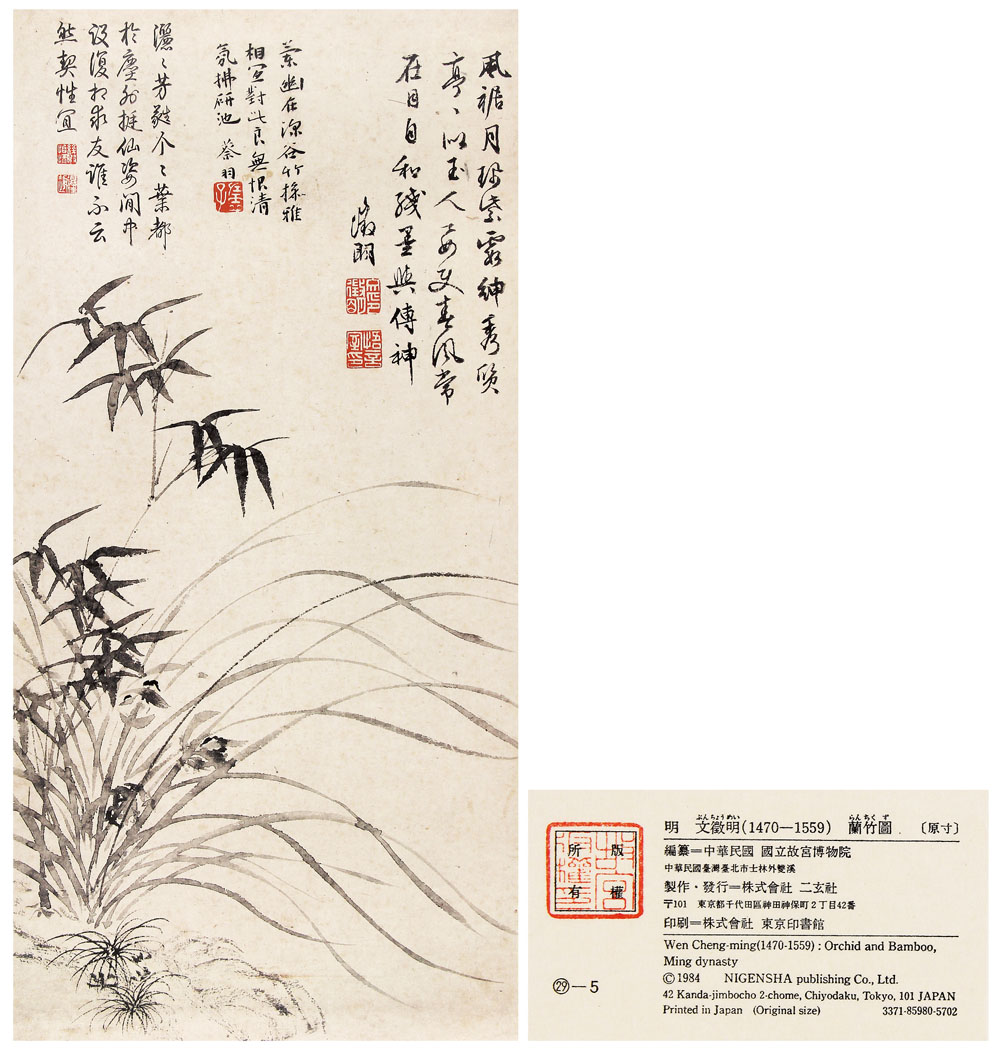 風裾月珮紫霞紳秀質
亭〻似玉人要使春風常
在目自和殘墨與傳神
徵明
徵明
悟言室印
蘭幽在深谷竹操雅
相宜對此良無恨清
氛拂研池 蔡羽
灑〻芳蕤个〻葉都
於塵外挺仙姿閒中
設復相求友誰不云
然契性宜
版權
所有
㉙—5
ぶんちょうめい らんちくず
明 文徵明(1470—1559) 蘭竹圖 〔原寸〕
編纂=中華民國 國立故宮博物院
中華民國臺灣臺北市士林外雙溪
製作・發行=株式會社 二玄社
〒101 東京都千代田區神田神保町2丁目42番
印刷=株式會社 東京印書館
Wen Cheng-ming(1470-1559) : Orchid and Bamboo,
Ming dynasty
©1984 NIGENSHA publishing Co., Ltd.
42 Kanda-jimbocho 2-chome, Chiyodaku, Tokyo, 101 JAPAN
Printed in Japan (Original size) 3371-85980-5702